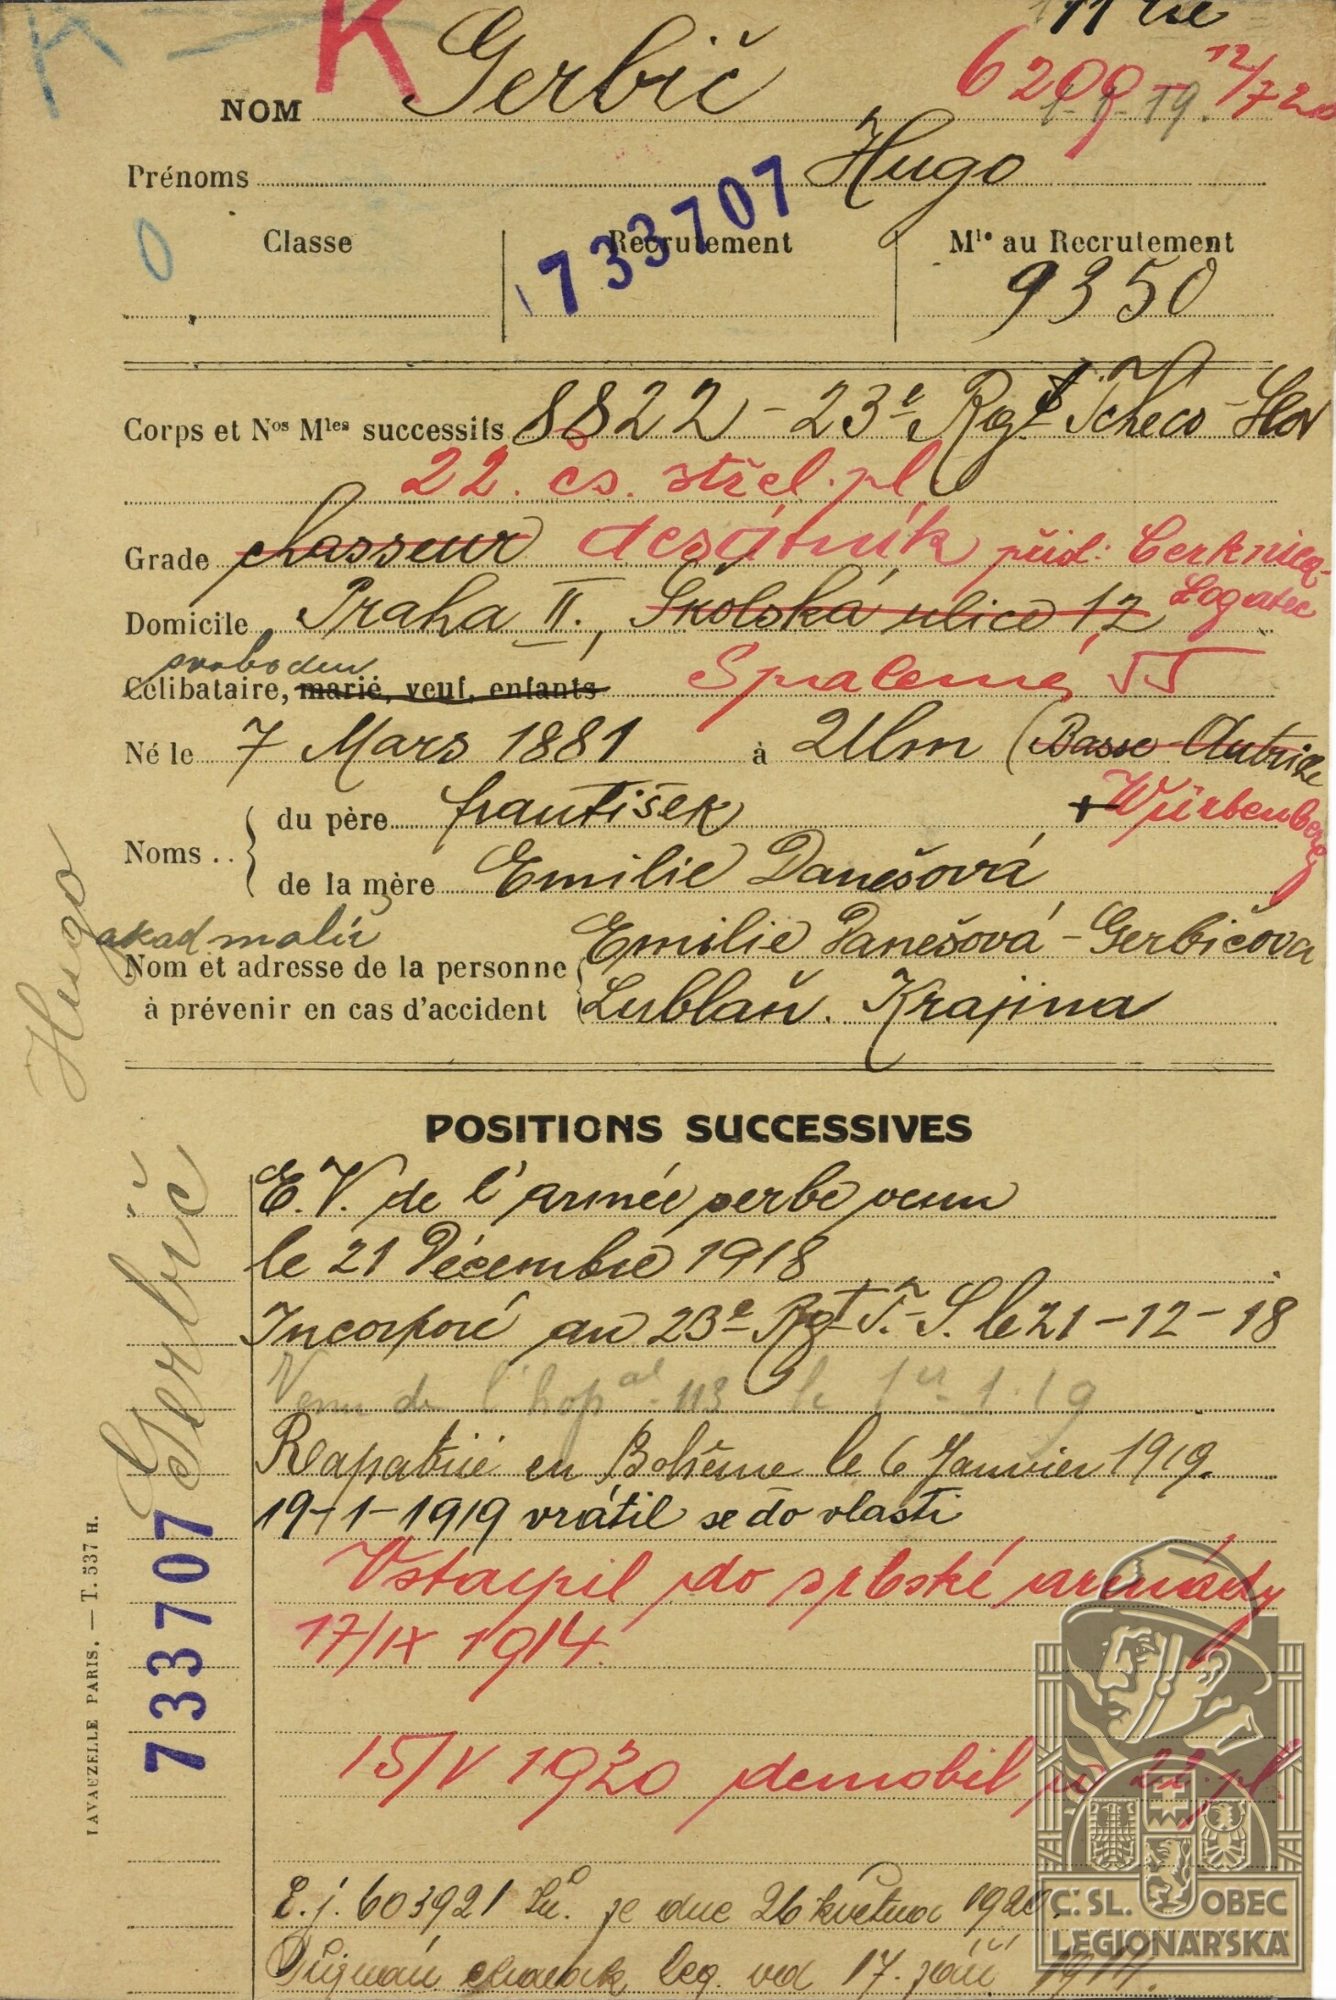 K K 11
NOM Gerbič 6299 - 12/7 20
1-1-19.
Prénoms Hugo
733707
0 Classe Recrutement Mle au Recrutement
9350
Corps et Nos Mles successifs 8822 - 23e Rgt Tcheco-Slov
22. čs. střel. pl.
Grade chasseur desátník přísl: Cerknica-
Domicile Praha II., Školská ulice 12 Logatec
svoboden
Célibataire, marié, veuf, enfants Spalená 55
Né le 7 Mars 1881 à Ulm (Basse Autriche
+ Würtenberg
Noms .. du père František
de la mère Emilie Danešová
akad malíř
Nom et adresse de la personne Emilie Danešová-Gerbičova
à prévenir en cas d'accident Lublaň. Krajina
POSITIONS SUCCESSIVES
E.V. de l'armée serbe venu
le 21 Décembre 1918
Incorporé au 23e Rgt T.-S. le 21-12-18
Venu de l'hopal 113 le 1er-1-19
Reapatrié en Bohême le 6 Janvier 1919.
19-1-1919 vrátil se do vlasti
Vstoupil do srbské armády
17/IX 1914.
15/V 1920 demobil u 22. pl.
E.j. 603921 je dne 26 května 1920.
Přiznán charak leg. od 17. září 1914.
Gerbič Hugo
733707
LAVAUZELLE PARIS. — T. 537 H.
Č. SL. OBEC
LEGIONÁŘSKÁ